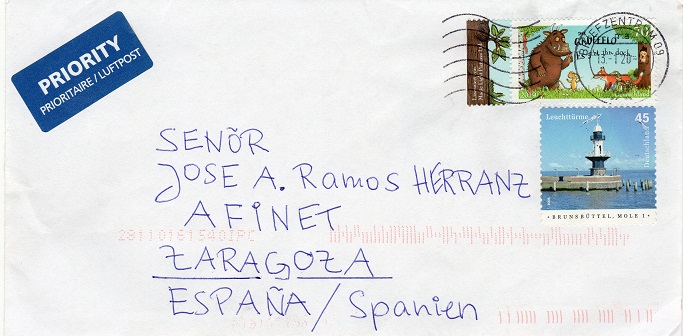 PRIORITY
PRIORITAIRE / LUFTPOST
BRIEFZENTRUM 09
GRÜFFELO
Leuchttürme 45
Deutschland
BRUNSBÜTTEL, MOLE 1
SENÕR
JOSE A. Ramos HERRANZ
AFINET
ZARAGOZA
ESPAÑA / Spanien